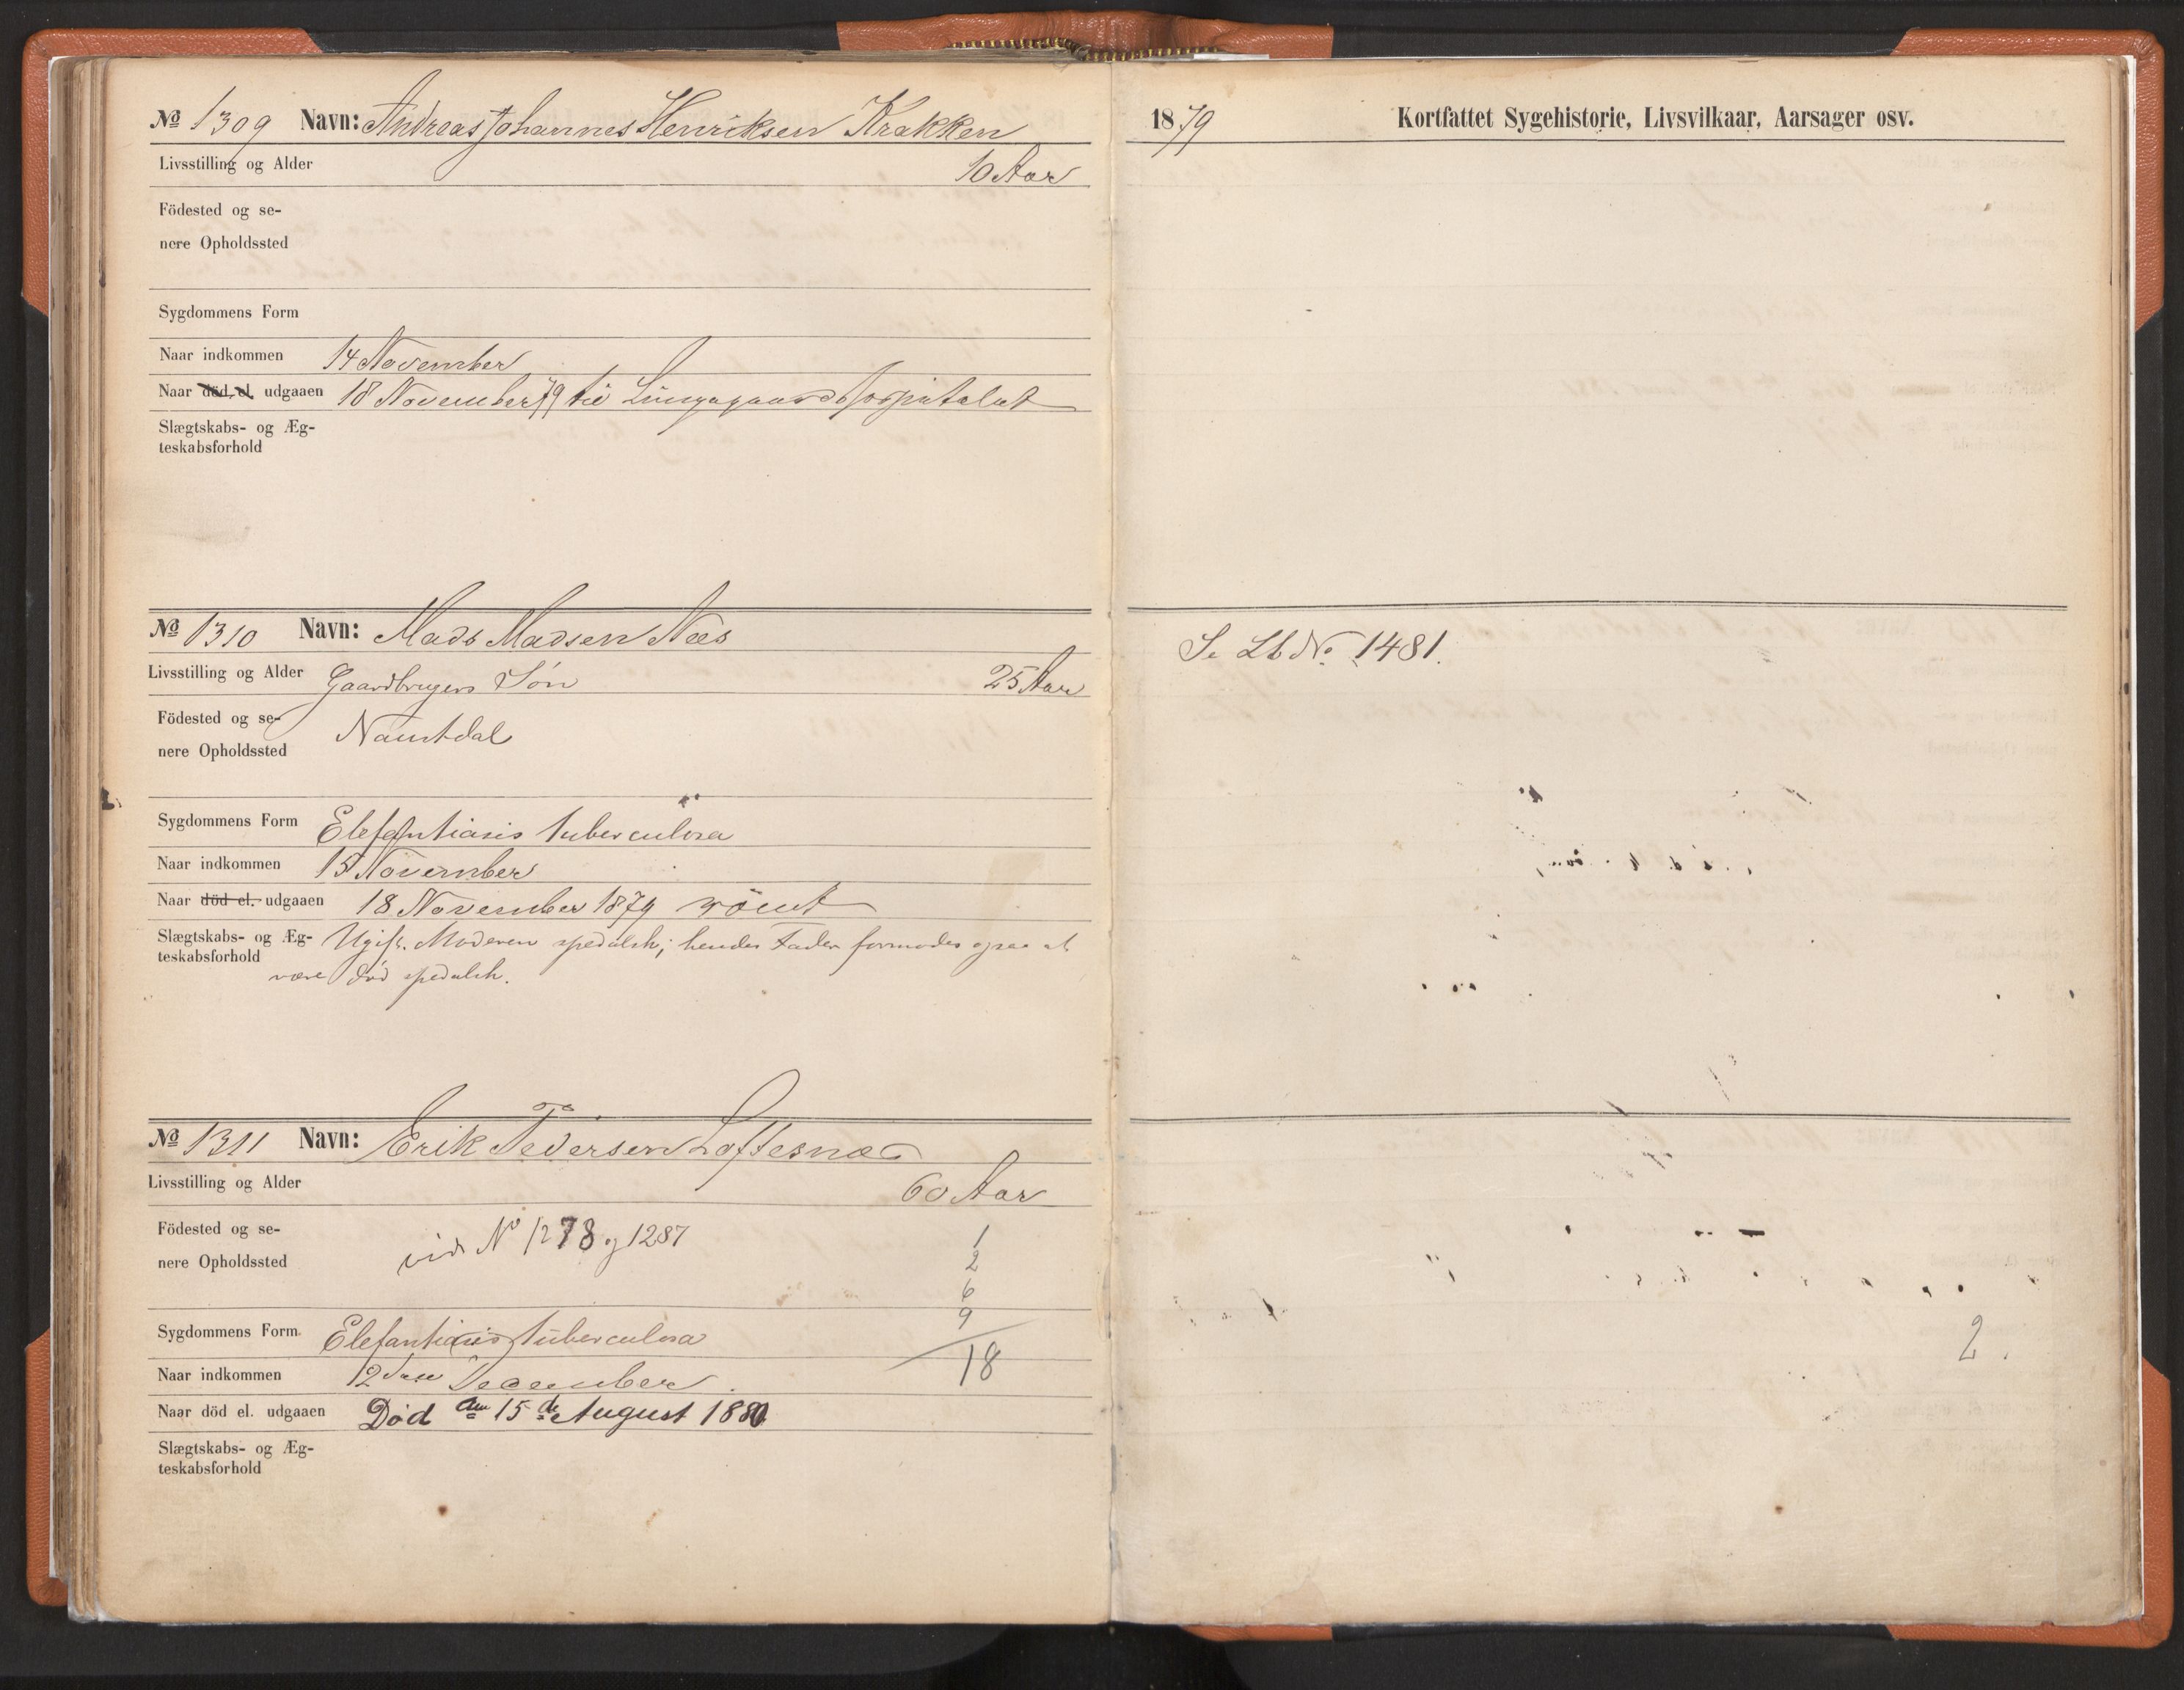 № 1309 Navn: Andreas Johannes Henriksen Krakken
Livsstilling og Alder 10 Aar
Födested og se-
nere Opholdssted
Sygdommens Form
Naar indkommen 14 November
Naar död el. udgaaen 18 November 79 til Lungegaardshospitalet
Slægtskabs- og Æg-
teskabsforhold
№ 1310 Navn: Mads Madsen Næs
Livsstilling og Alder Gaardbrugers Sön 25 Aar
Födested og se-
nere Opholdssted
Naustdal
Sygdommens Form Elefantiasis tuberculosa
Naar indkommen 15 November
Naar död el. udgaaen 18 November 1879 römt
Slægtskabs- og Æg-
teskabsforhold
Ugift. Moderen spedalsk; hendes Fader formodes ogsaa at
være död spedalsk.
№ 1311 Navn: Erik Pedersen Loftesnæs
Livsstilling og Alder 60 Aar
Födested og se-
nere Opholdssted
vide N° 1278 og 1287
1
2
6
9
18
Sygdommens Form Elefantiasis tuberculosa
Naar indkommen 12 December
Naar död el. udgaaen Död den 15de August 1880
Slægtskabs- og Æg-
teskabsforhold
1879 Kortfattet Sygehistorie, Livsvilkaar, Aarsager osv.
Se Lb No 1481.
2.